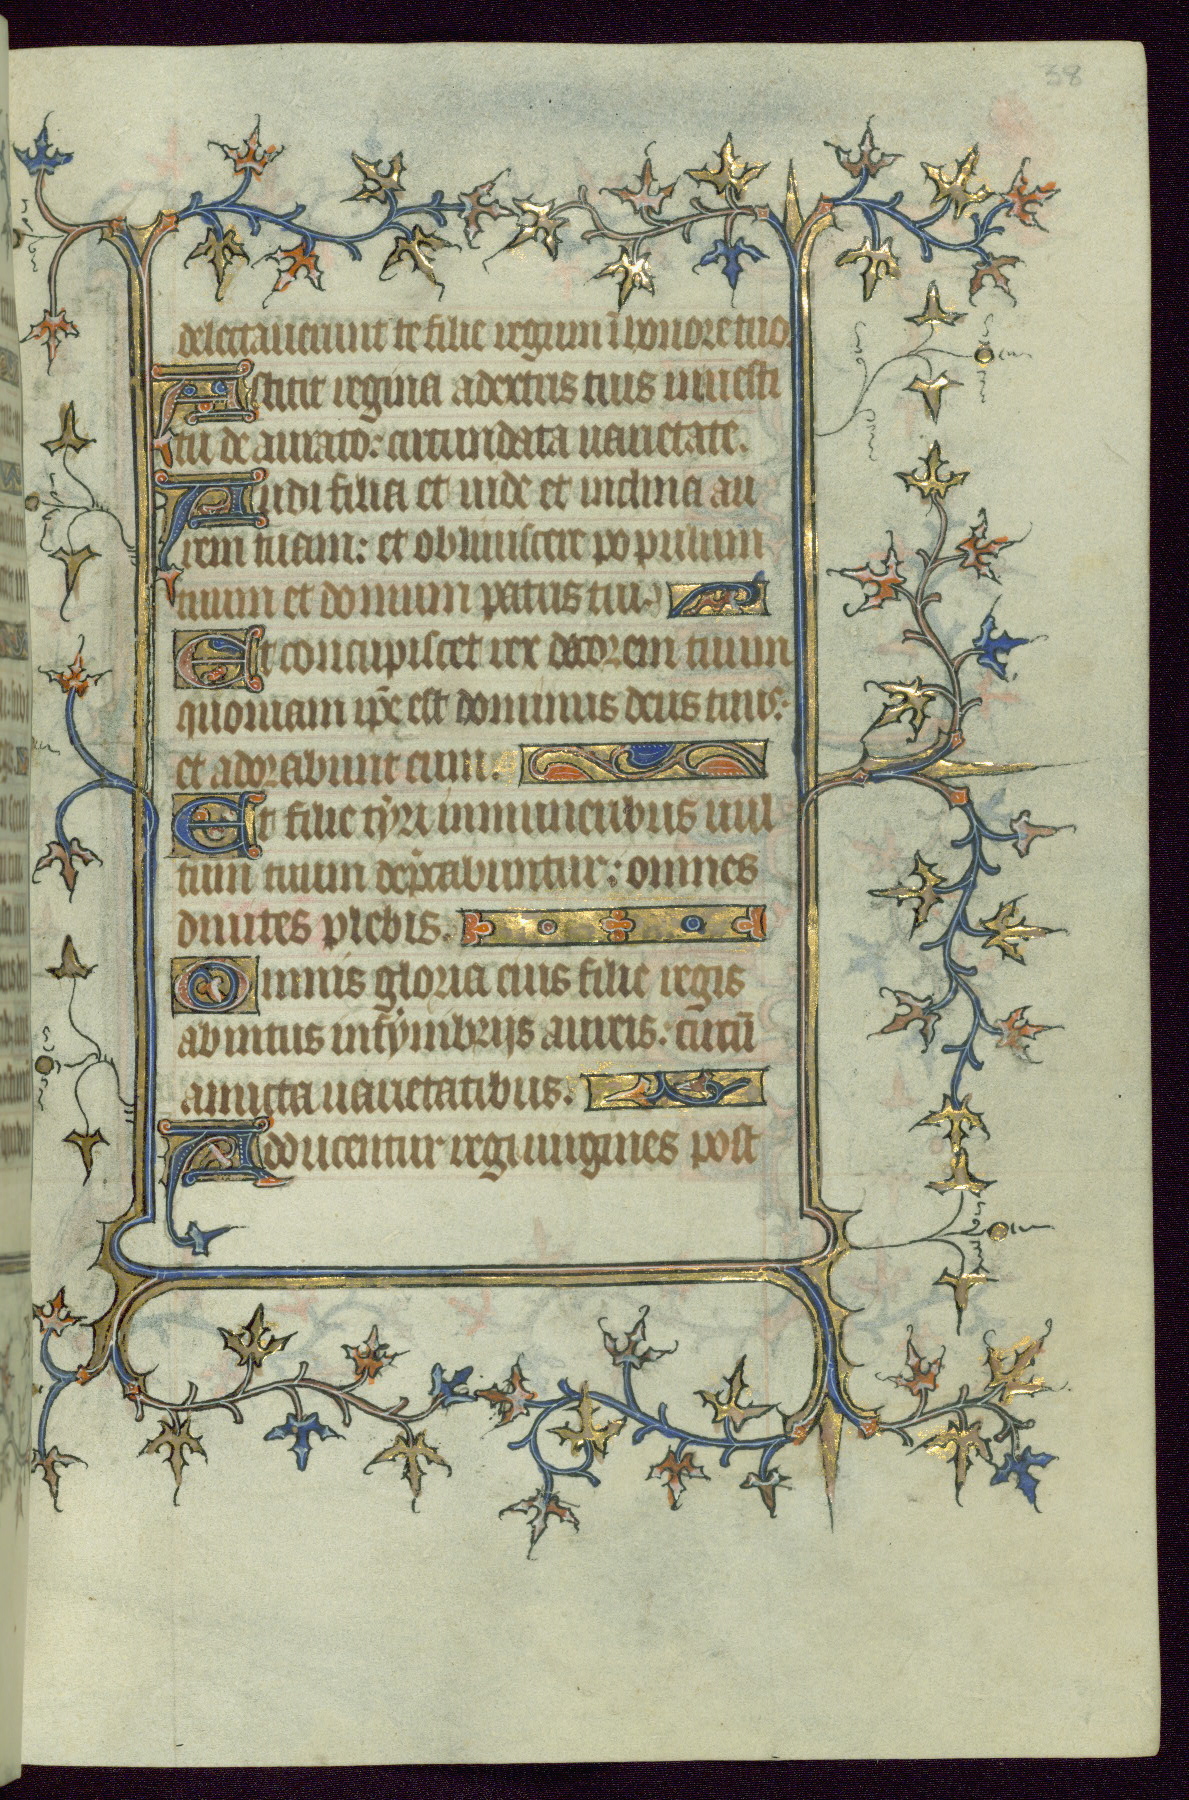 38
delectauerunt te filie regum ī honore tuo
Astitit regina adextris tuis in uesti
tu de aurato: circundata uarietate.
Audi filia et uide et inclina au
rem tuam: et obliuiscere populum
tuum et domum patris tui.
Et concupiscet rex decorem tuum
quoniam ip̄e est dominus deus tuus:
et adorabunt eum.
Et filie tyri in muneribus uul
tum tuum dep̄cabuntur: omnes
diuites plebis.
Omnis gloria eius filie regis
abintus in fymbrijs aureis: circū
amicta uarietatibus.
Adducentur regi uirgines post